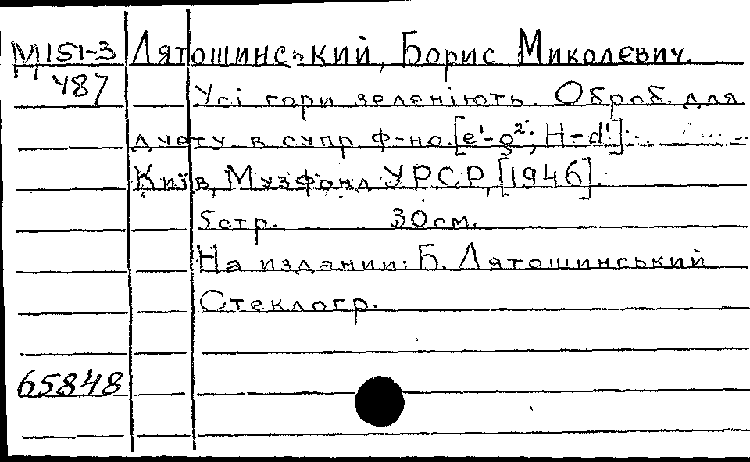 М 151-3
487
Лятошинський, Борис Миколєвич.
Усі гори зеленіють. Оброб. для
дуэту в супр. ф-но. [e¹-g²; H-d¹].
Київ, Музфонд УРСР, [1946].
5 стр. 30 см.
На издании: Б. Лятошинський
Стеклогр.
65848